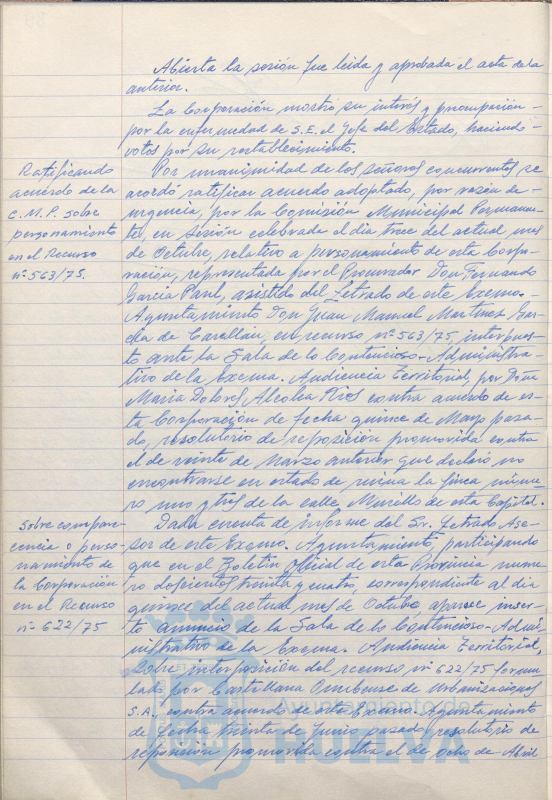 Abierta la sesión fue leida y aprobada el acta de la
anterior.
La Corporación mostró su interés y preocupación -
por la enfermedad de S.E. el Jefe del Estado, haciendo
votos por su restablecimiento.
Ratificando
acuerdo de la
C.M.P. sobre
personamiento
en el Recurso
nº 563/75.
Por unanimidad de los señores concurrentes se
acordó ratificar acuerdo adoptado, por razón de -
urgencia, por la Comisión Municipal Permanen-
te, en sesión celebrada el dia trece del actual mes
de Octubre, relativo a personamiento de esta Corpo-
ración, representada por el Procurador Don Fernando
Garcia Parul, asistido del Letrado de este Excmo. -
Ayuntamiento Don Juan Manuel Martinez Gar-
cia de Casellán, en recurso nº 563/75, interpues-
to ante la Sala de lo Contencioso-Administra-
tivo de la Excma. Audiencia Territorial, por Doña
Maria Dolores Alcolea Rios contra acuerdo de es-
ta Corporación de fecha quince de Mayo pasa-
do, resolutorio de reposición promovida contra
el de veinte de Marzo anterior que declaró no
encontrarse en estado de ruina la finca núme-
ro uno y tres de la calle Murillo de esta Capital.
Sobre compare-
cencia o perso-
namiento de
la Corporación
en el Recurso
nº 622/75
Dada cuenta de informe del Sr. Letrado Ase-
sor de este Excmo. Ayuntamiento participando
que en el Boletin Oficial de esta Provincia nume-
ro doscientos treinta y cuatro, correspondiente al dia
quince del actual mes de Octubre aparece inser-
to anuncio de la Sala de lo Contencioso-Admi-
nistrativo de la Excma. Audiencia Territorial,
sobre interposición del recurso nº 622/75 formu-
lado por Castellana Onubense de Urbanizaciones
S.A. contra acuerdo de este Excmo. Ayuntamiento
de fecha treinta de Junio pasado, resolutorio de
reposición promovida contra el de ocho de Abril
Ayuntamiento de
HUELVA